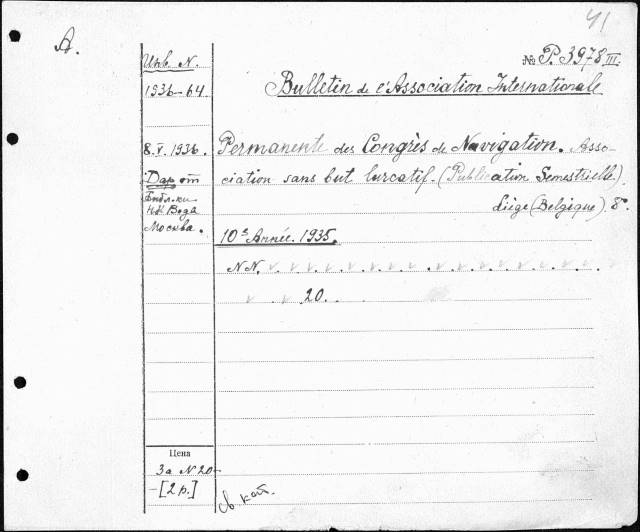 41
A.
№ P. 3978 III.
Инв. N.
1936-64
Bulletin de l'Association Internationale
8.V.1936.
Permanente des Congrès de Navigation. Asso-
Дар от
ciation sans but lurcatif. (Publication Semestrielle).
Библ-ки
Liège (Belgique). 8°.
НК Вода
Москва.
10e Année. 1935.
NN.
20.
Цена
За N 20-
-[2 р.]
св. кат.